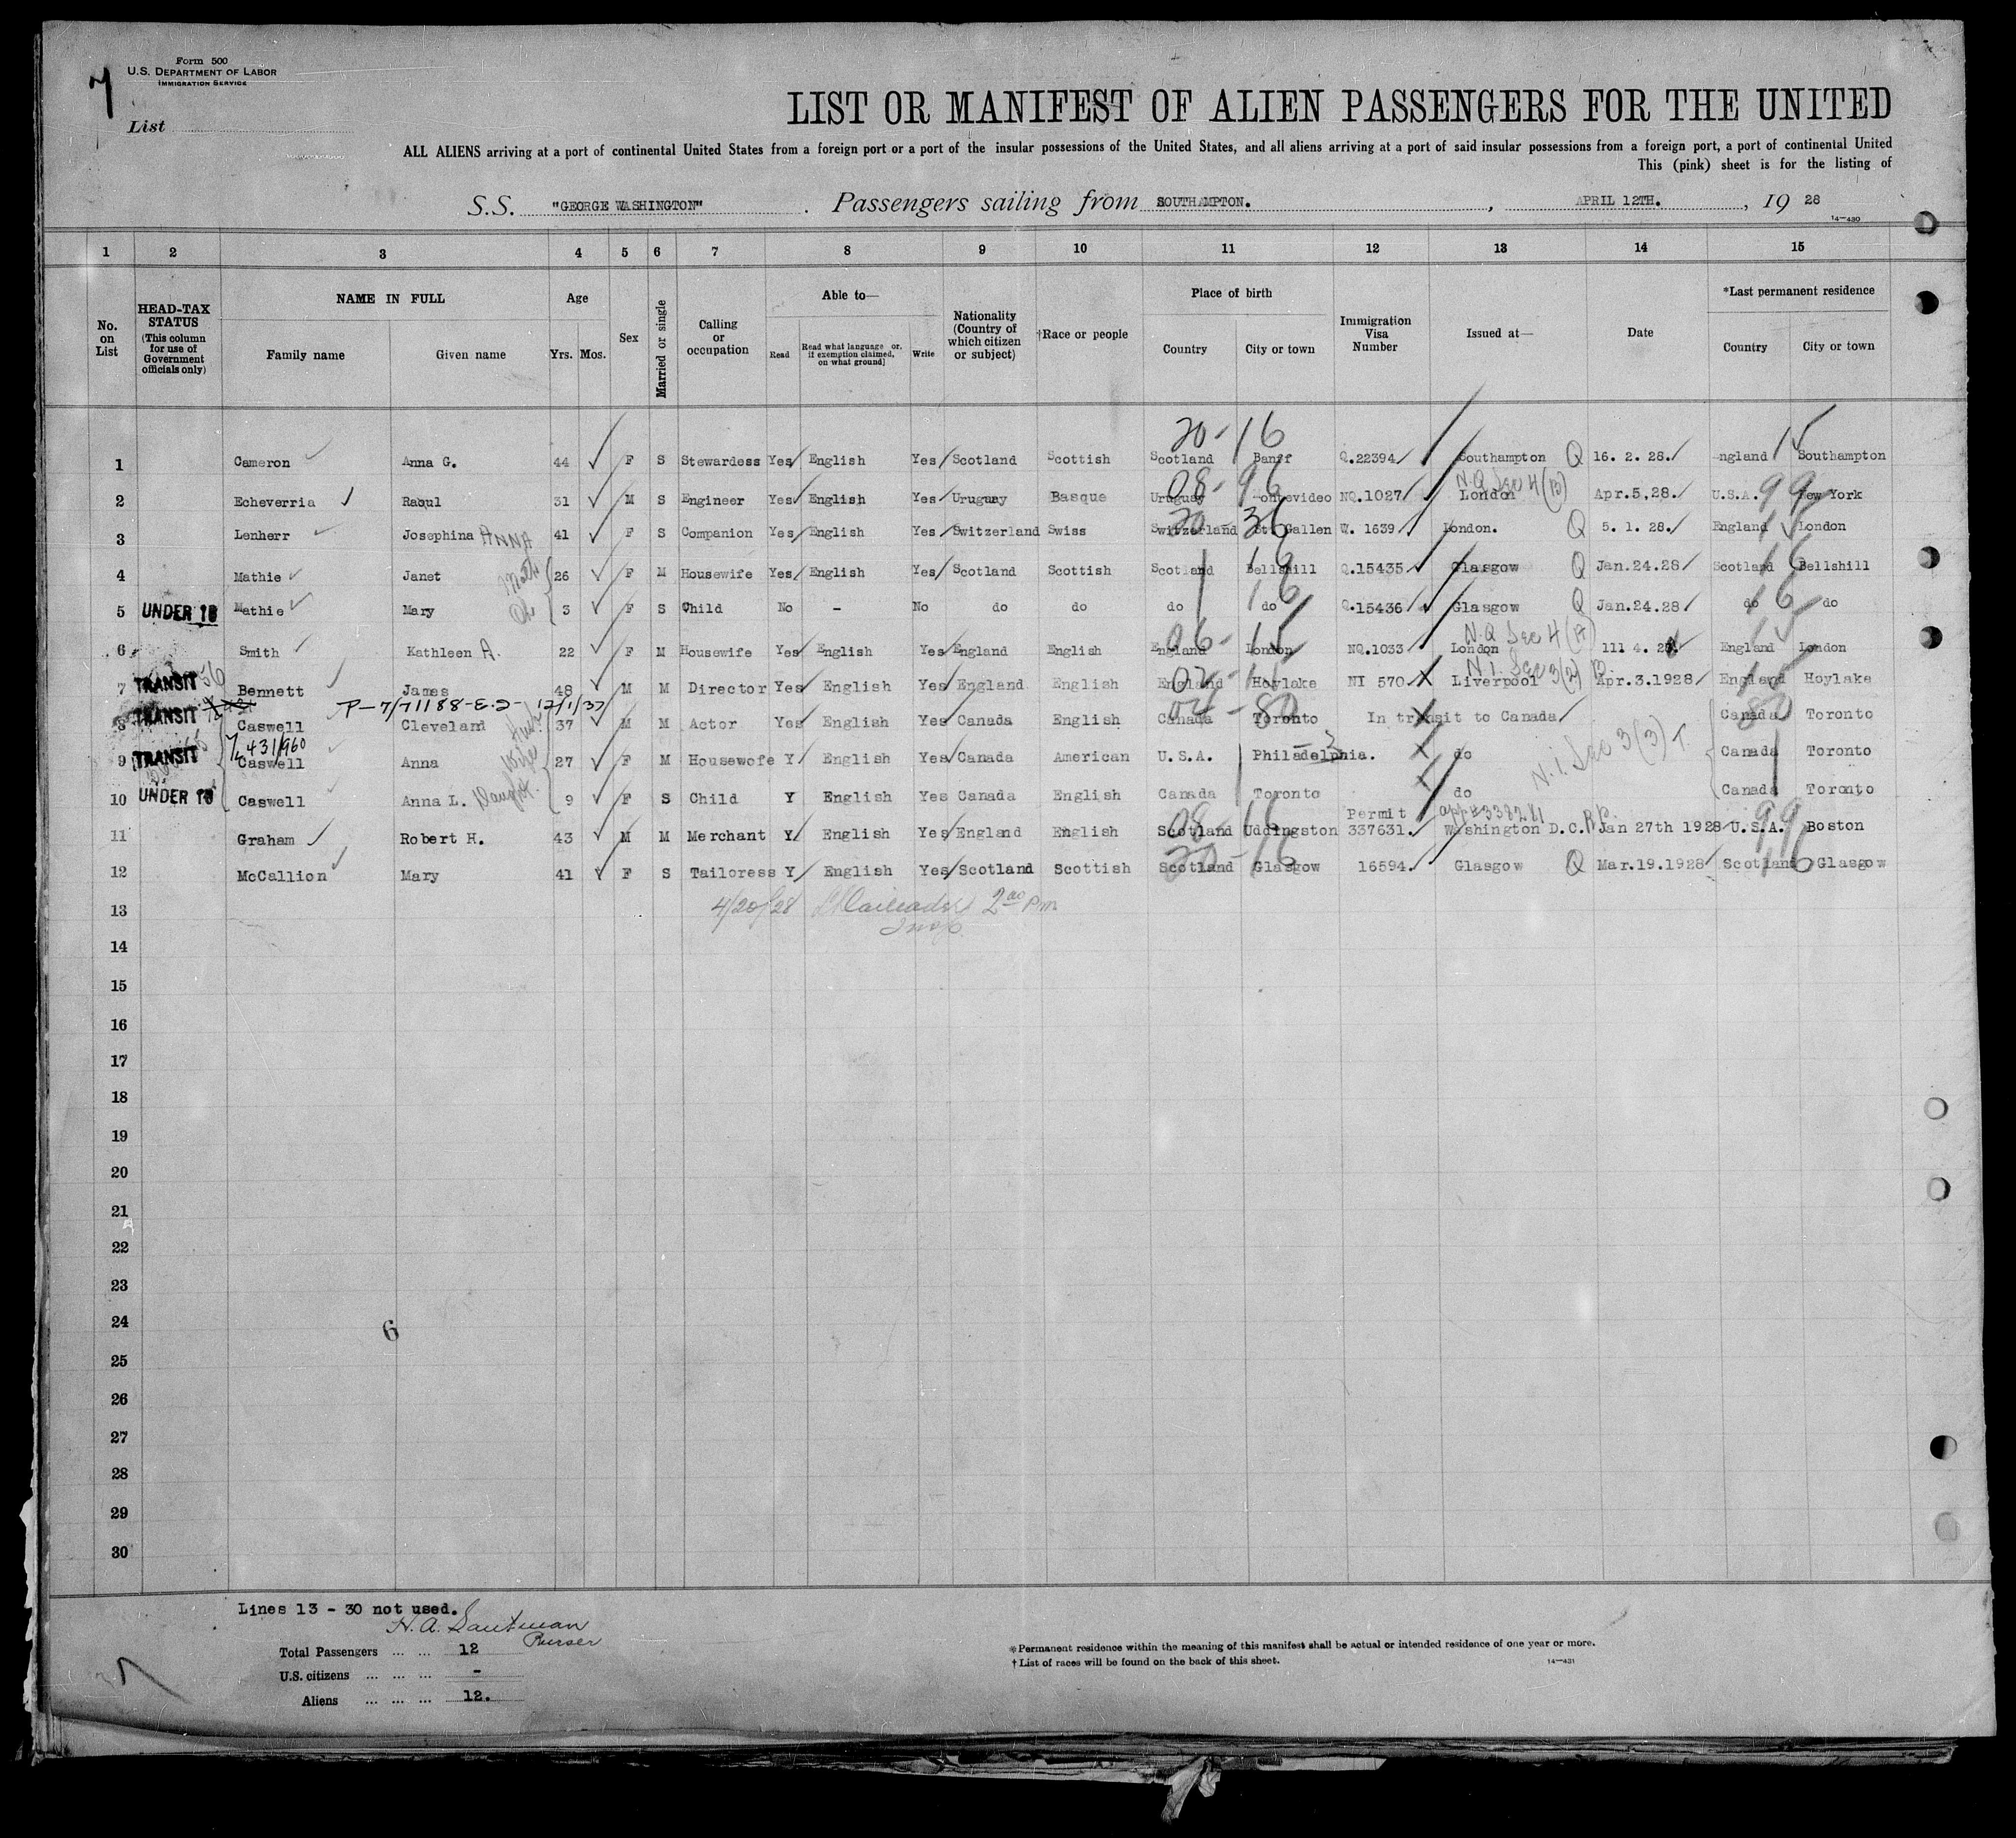 7
Form 500
U.S. DEPARTMENT OF LABOR
IMMIGRATION SERVICE
List
LIST OR MANIFEST OF ALIEN PASSENGERS FOR THE UNITED
ALL ALIENS arriving at a port of continental United States from a foreign port or a port of the insular possessions of the United States, and all aliens arriving at a port of said insular possessions from a foreign port, a port of continental United
This (pink) sheet is for the listing of
S.S. "GEORGE WASHINGTON" . Passengers sailing from SOUTHAMPTON. , APRIL 12TH. , 19 28
14—430
1 2 3 4 5 6 7 8 9 10 11 12 13 14 15
No. on List
HEAD-TAX STATUS (This column for use of Government officials only)
NAME IN FULL Family name Given name
Age Yrs. Mos.
Sex
Married or single
Calling or occupation
Able to— Read Read what language or, if exemption claimed, on what ground] Write
Nationality (Country of which citizen or subject)
†Race or people
Place of birth Country City or town
Immigration Visa Number
Issued at—
Date
*Last permanent residence Country City or town
20-16
1 Cameron Anna G. 44 F S Stewardess Yes English Yes Scotland Scottish Scotland Banff Q.22394 Southampton Q 16. 2. 28. England Southampton
08-96 N.Q Sec 4(B) 99
2 Echeverria Raoul 31 M S Engineer Yes English Yes Uruguay Basque Uruguay ontevideo NQ.1027 London Apr.5,28. U.S.A. New York
3 Lenherr Josephina ANNA 41 F S Companion Yes English Yes Switzerland Swiss Switzerland St Gallen W. 1639 London. Q 5. 1. 28. England London
4 Mathie Janet 26 F M Housewife Yes English Yes Scotland Scottish Scotland Bellshill Q.15435 Glasgow Q Jan.24.28 Scotland Bellshill
5 UNDER 16 Mathie Mary 3 F S Child No - No do do do do Q.15436 Glasgow Q Jan.24.28 do do
6 Smith Kathleen A. 22 F M Housewife Yes English Yes England English England London NQ.1033 London 111 4. 28 England London
7 TRANSIT Bennett James 48 M M Director Yes English Yes England English England Hoylake NI 570 Liverpool Apr.3.1928 England Hoylake
P-7/71188-E-2- 12/1/37
8 TRANSIT Caswell Cleveland 37 M M Actor Yes English Yes Canada English Canada Toronto In transit to Canada Canada Toronto
431/960
9 TRANSIT Caswell Anna Wife 27 F M Housewofe Y English Yes Canada American U.S.A. Philadelphia. do N.I. Sec 3(3) T Canada Toronto
10 UNDER 16 Caswell Anna L. Daught. 9 F S Child Y English Yes Canada English Canada Toronto do Canada Toronto
Permit
11 Graham Robert H. 43 M M Merchant Y English Yes England English Scotland Uddingston 337631. Washington D.C. Jan 27th 1928 U.S.A. Boston
12 McCallion Mary 41 F S Tailoress Y English Yes Scotland Scottish Scotland Glasgow 16594. Glasgow Q Mar.19.1928 Scotland Glasgow
4/20/28 2 00 Pm
13
14
15
16
17
18
19
20
21
22
23
24
6
25
26
27
28
29
30
Lines 13 - 30 not used.
H.A. Sautman
Purser
Total Passengers ... ... 12
U.S. citizens ... ... ... -
Aliens ... ... ... 12.
*Permanent residence within the meaning of this manifest shall be actual or intended residence of one year or more.
†List of races will be found on the back of this sheet.
14—431